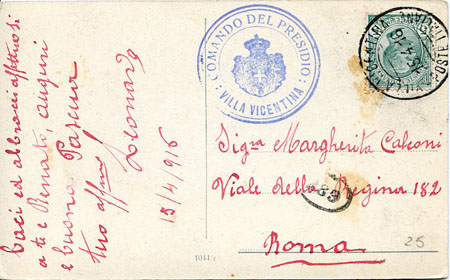 Baci ed abbracci affettuosi
a te e Renato, auguri
e buona Pasqua
tuo affmo
Leonardo
15/4/916
COMANDO DEL PRESIDIO
VILLA VICENTINA
POSTE ITALIANE
VILLA VICENTINA
15 4 16
Sigra Margherita Calconi
Viale della Regina 182
Roma
83
25